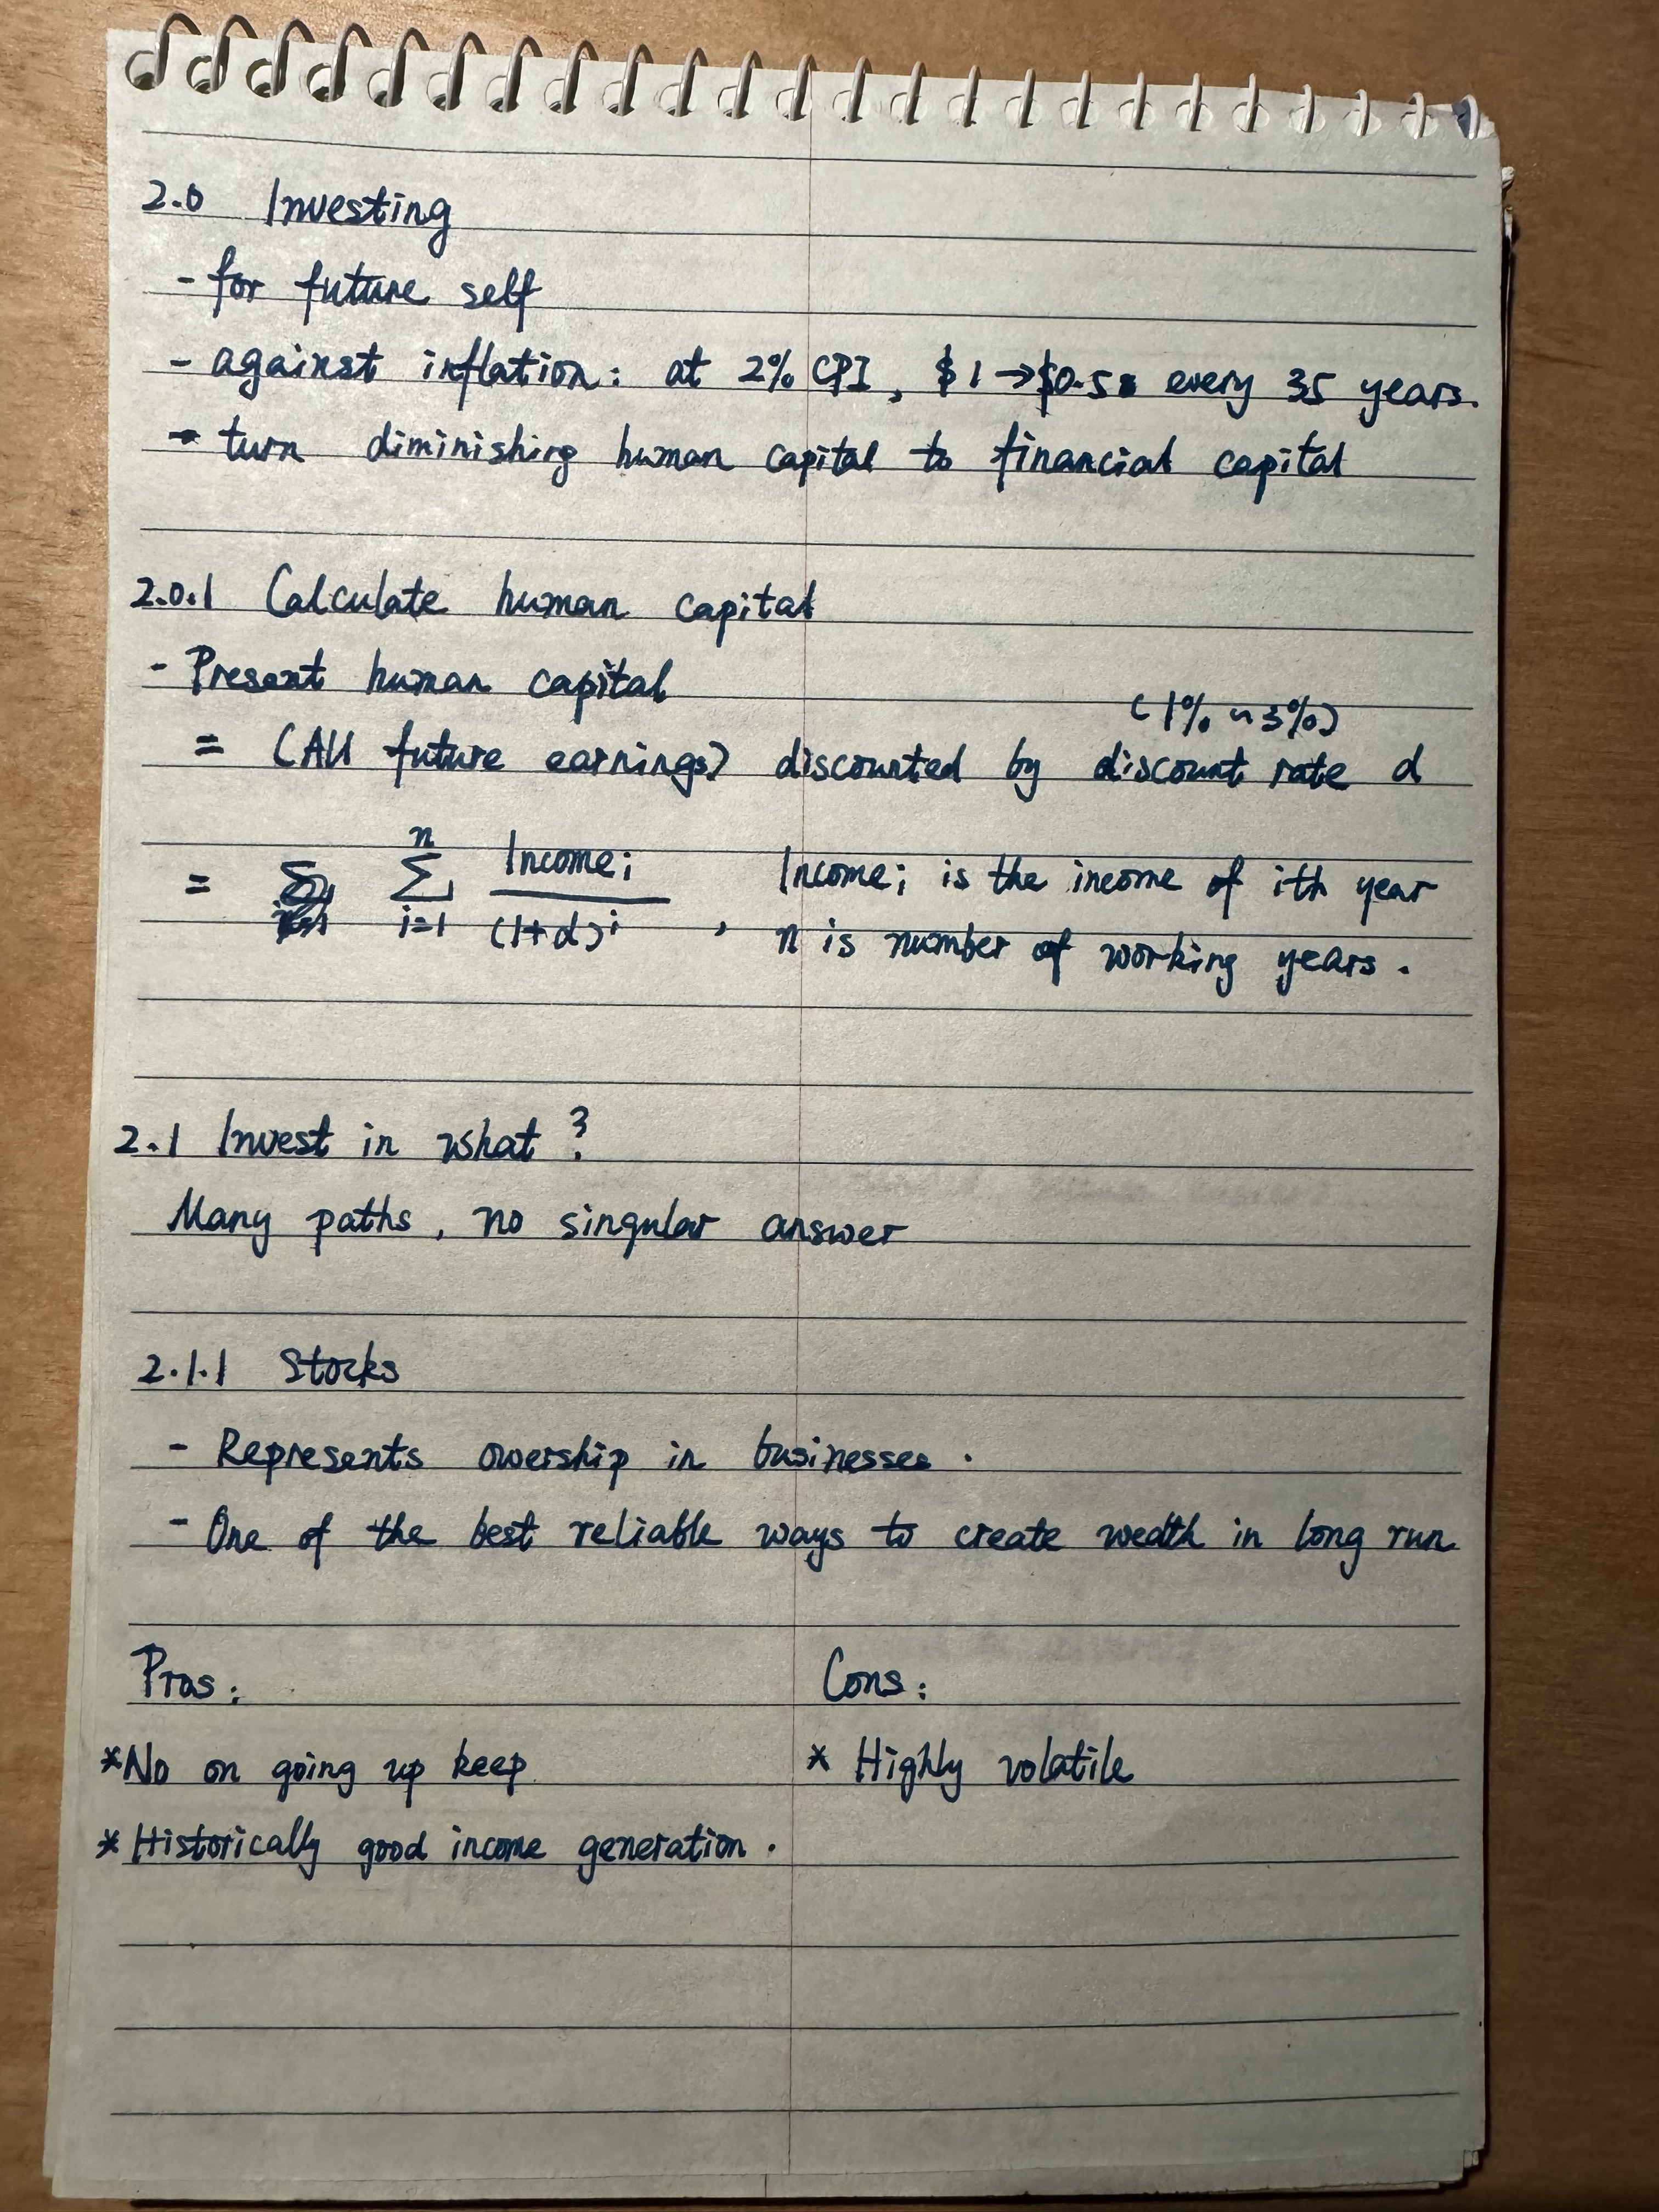 2.0 Investing
- for future self
- against inflation: at 2% CPI, $1→$0.5 every 35 years.
- turn diminishing human capital to financial capital
2.0.1 Calculate human capital
- Present human capital
(1% ~ 3%)
= (All future earnings) discounted by discount rate d
= n ∑ i=1 Income_i / (1+d)^i , Income_i is the income of ith year
n is number of working years.
2.1 Invest in what?
Many paths, no singular answer
2.1.1 Stocks
- Represents owership in businesses.
- One of the best reliable ways to create wealth in long run
Pros: Cons:
*No on going up keep * Highly volatile
*Historically good income generation.